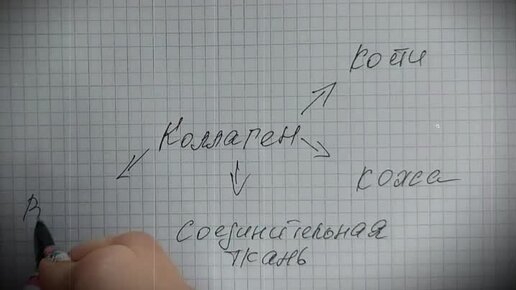 кости
Коллаген
кожа
В
соединительная
ткань